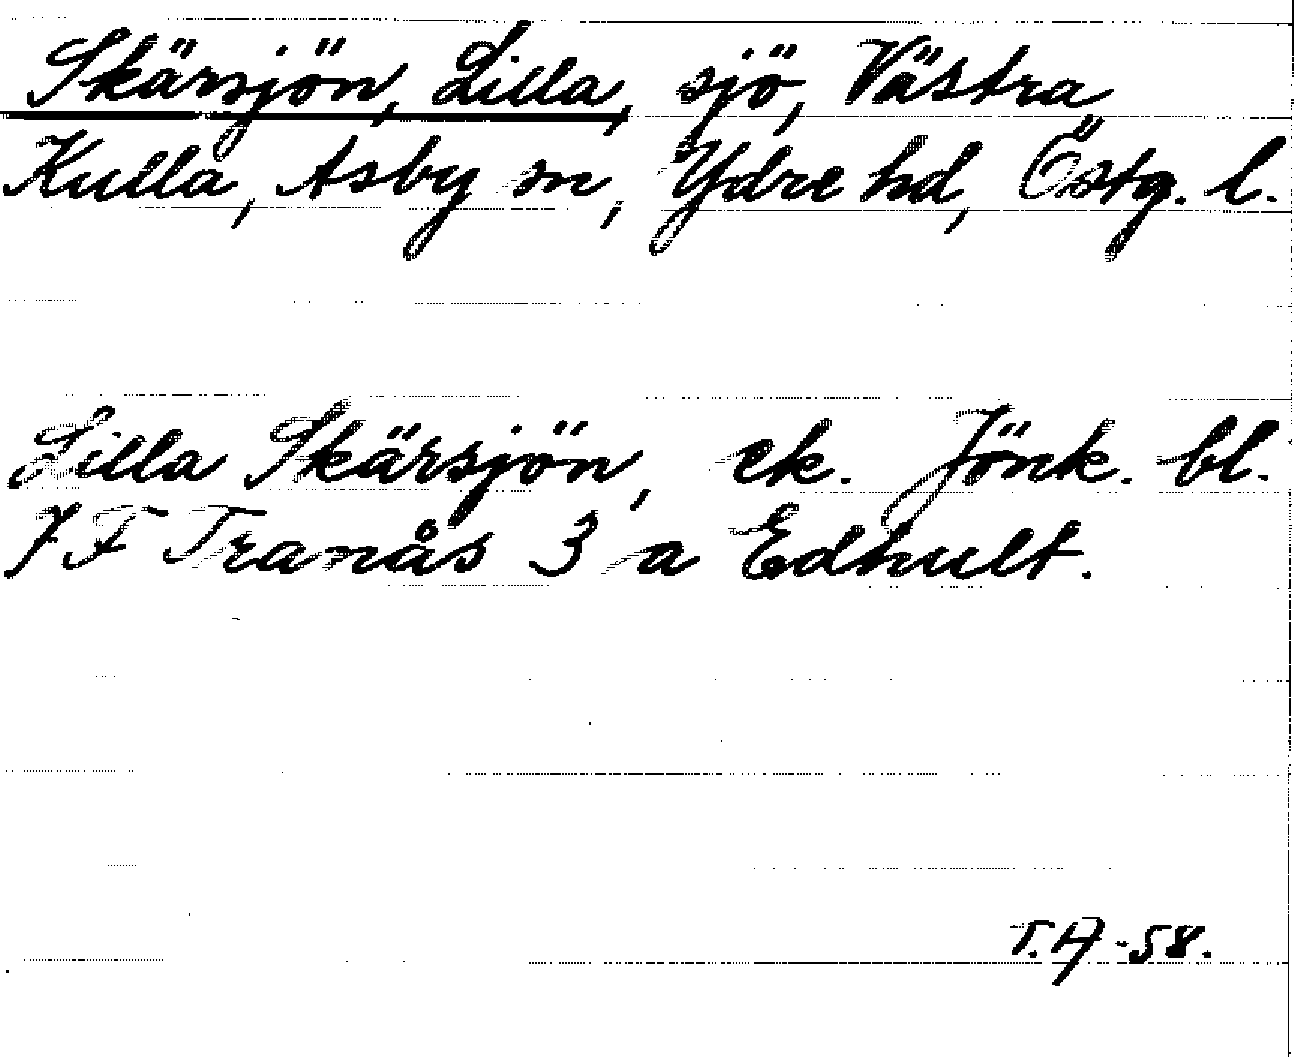 Skärsjön, Lilla, sjö, Västra
Kulla, Asby sn, Ydre hd, Östg. l.
Lilla Skärsjön, ek. Jönk. bl.
7 F Tranås 3 a Edhult.
T.A -58.